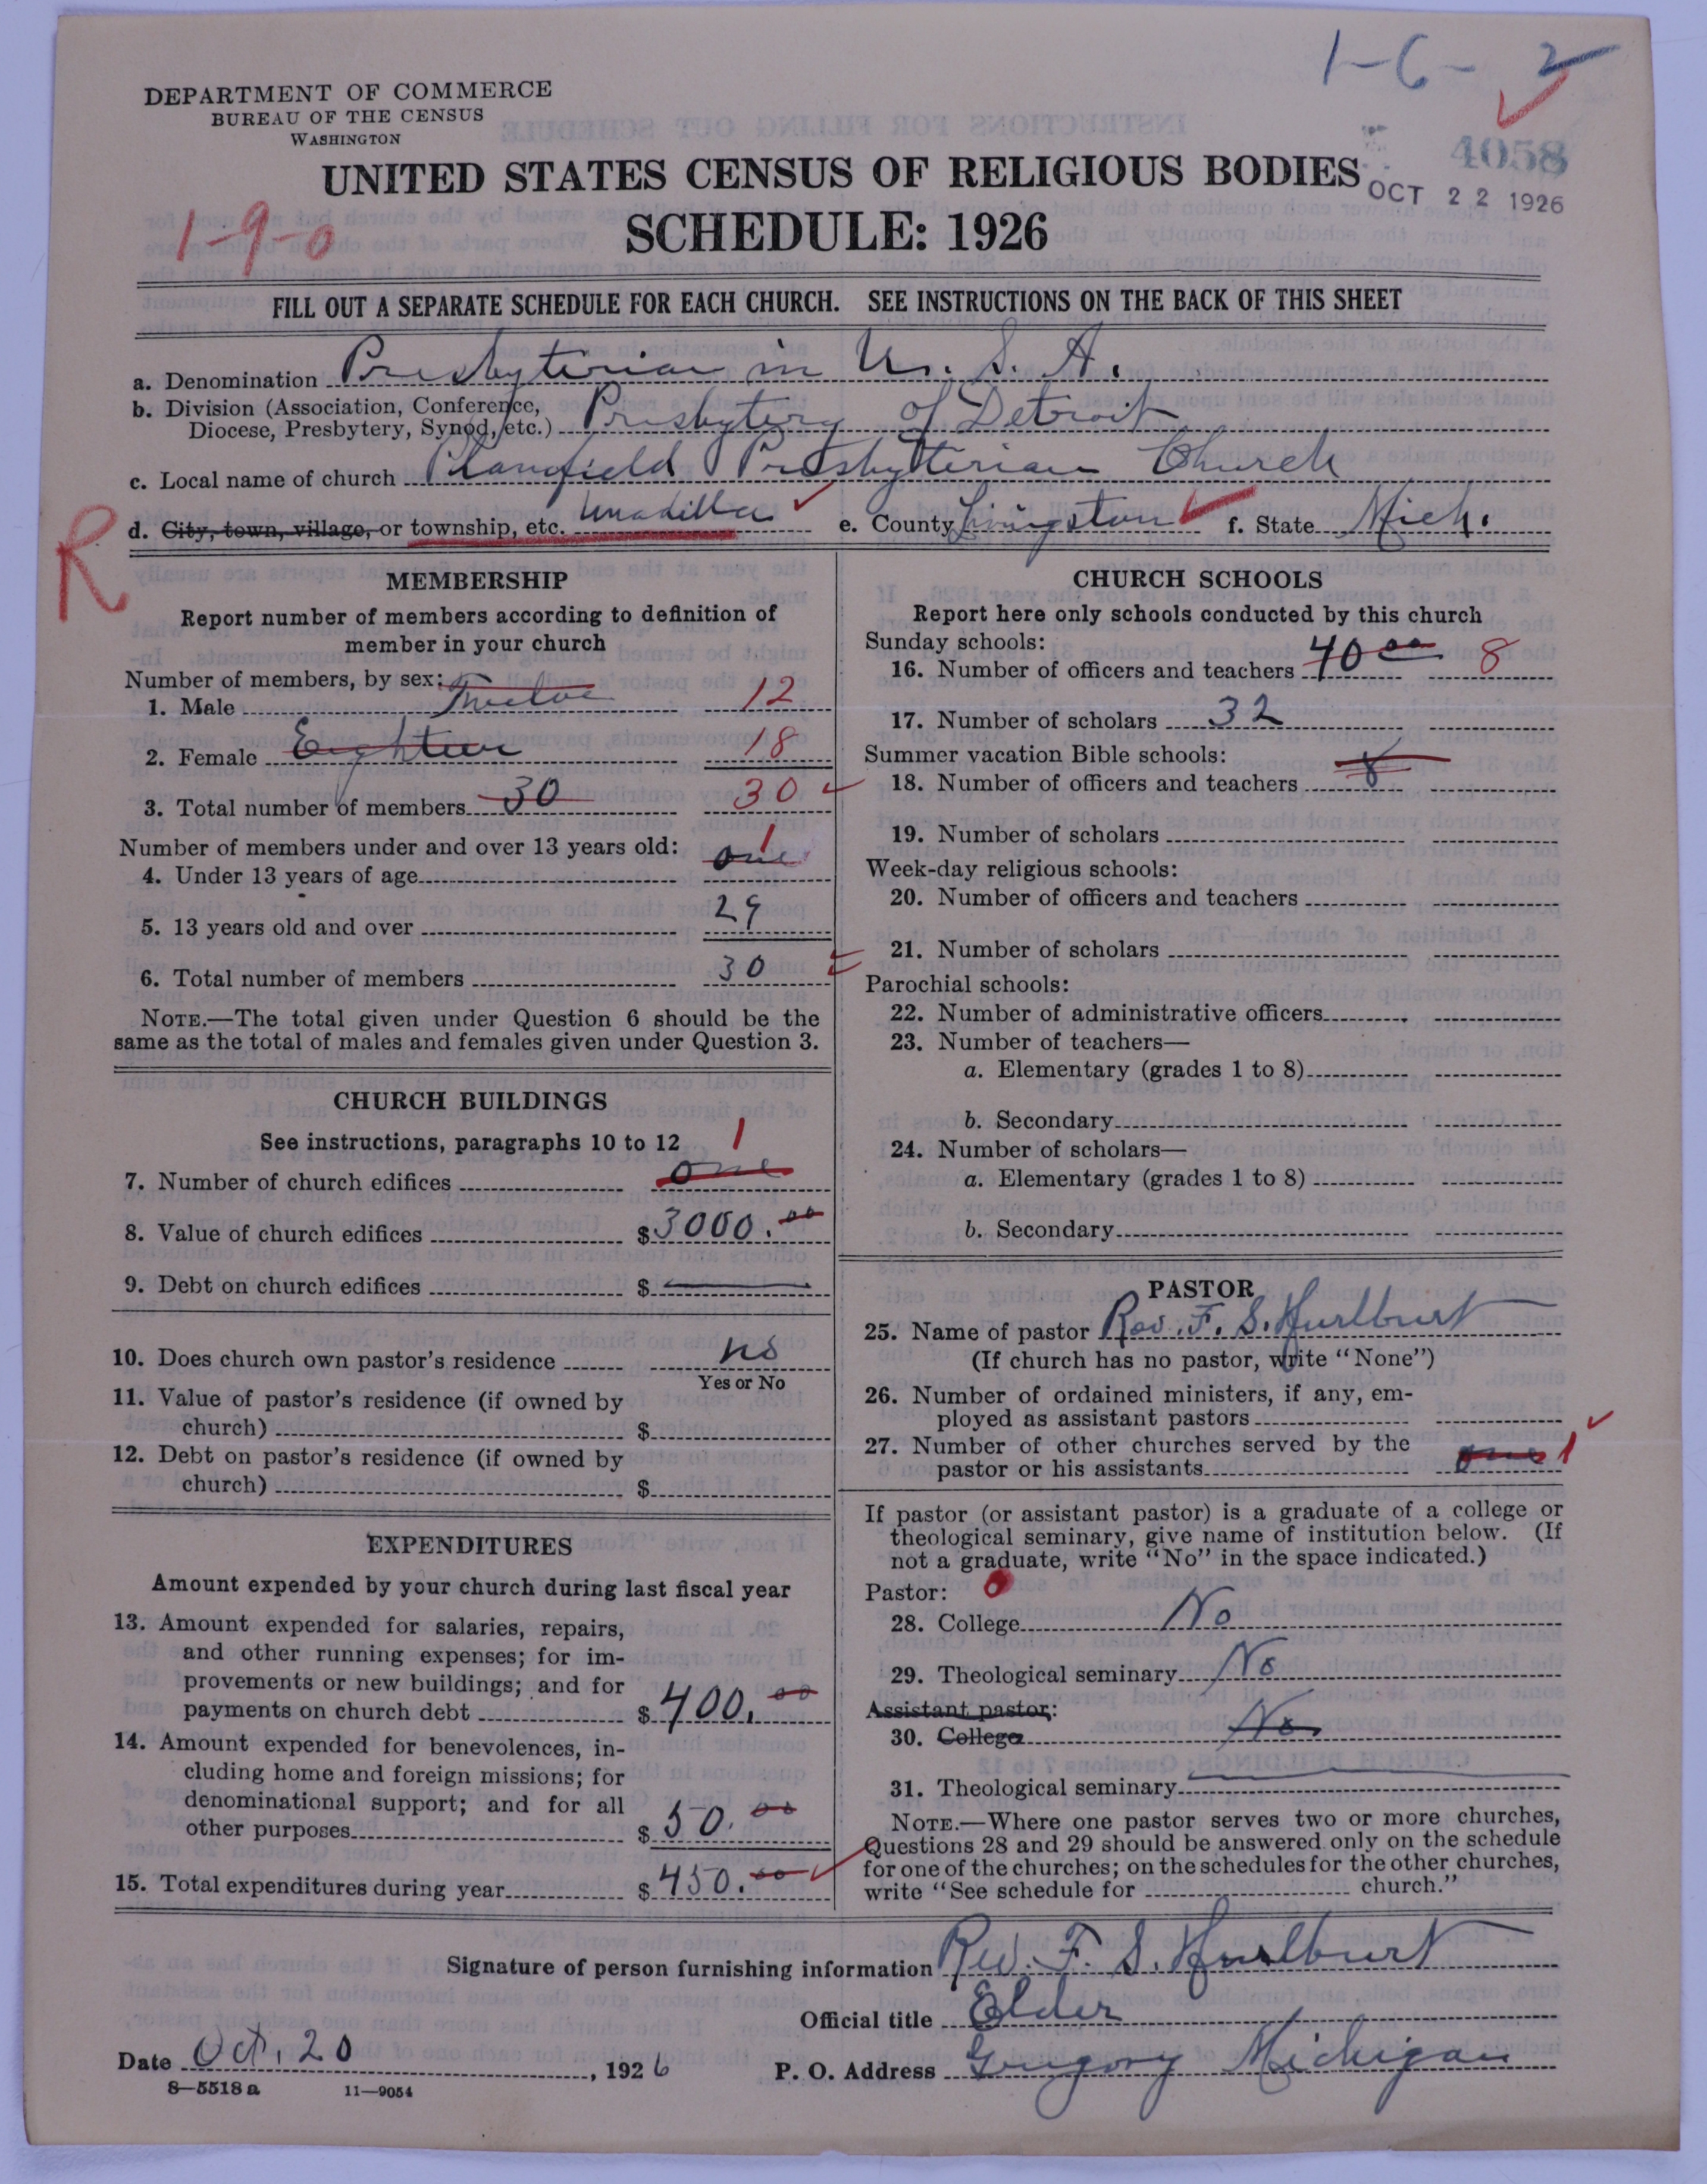 1-6-2
DEPARTMENT OF COMMERCE
BUREAU OF THE CENSUS
WASHINGTON
4058
UNITED STATES CENSUS OF RELIGIOUS BODIES
OCT 22 1926
SCHEDULE: 1926
1-9-0
FILL OUT A SEPARATE SCHEDULE FOR EACH CHURCH. SEE INSTRUCTIONS ON THE BACK OF THIS SHEET
a. Denomination Presbyterian in U. S. A.
b. Division (Association, Conference, Diocese, Presbytery, Synod, etc.) Presbytery of Detroit
c. Local name of church Planfield Presbyterian Church
R
d. City, town, village, or township, etc. Unadilla e. County Livingston f. State Mich.
MEMBERSHIP
Report number of members according to definition of
member in your church
Number of members, by sex:
1. Male Twelve 12
2. Female Eighteen 18
3. Total number of members 30 30
Number of members under and over 13 years old:
4. Under 13 years of age one 1
5. 13 years old and over 29
6. Total number of members 30
NOTE.—The total given under Question 6 should be the
same as the total of males and females given under Question 3.
CHURCH BUILDINGS
See instructions, paragraphs 10 to 12
7. Number of church edifices one 1
8. Value of church edifices $3000.00
9. Debt on church edifices $
10. Does church own pastor's residence no
Yes or No
11. Value of pastor's residence (if owned by
church) $
12. Debt on pastor's residence (if owned by
church) $
EXPENDITURES
Amount expended by your church during last fiscal year
13. Amount expended for salaries, repairs,
and other running expenses; for im-
provements or new buildings; and for
payments on church debt $400.00
14. Amount expended for benevolences, in-
cluding home and foreign missions; for
denominational support; and for all
other purposes $50.00
15. Total expenditures during year $450.00
CHURCH SCHOOLS
Report here only schools conducted by this church
Sunday schools:
16. Number of officers and teachers 40 00 8
17. Number of scholars 32
Summer vacation Bible schools:
18. Number of officers and teachers 8
19. Number of scholars
Week-day religious schools:
20. Number of officers and teachers
21. Number of scholars
Parochial schools:
22. Number of administrative officers
23. Number of teachers—
a. Elementary (grades 1 to 8)
b. Secondary
24. Number of scholars—
a. Elementary (grades 1 to 8)
b. Secondary
PASTOR
25. Name of pastor Rev. F. S. Hurlburt
(If church has no pastor, write "None")
26. Number of ordained ministers, if any, em-
ployed as assistant pastors
27. Number of other churches served by the
pastor or his assistants one 1
If pastor (or assistant pastor) is a graduate of a college or
theological seminary, give name of institution below. (If
not a graduate, write "No" in the space indicated.)
Pastor:
28. College No
29. Theological seminary No
Assistant pastor:
30. College No
31. Theological seminary
NOTE.—Where one pastor serves two or more churches,
Questions 28 and 29 should be answered only on the schedule
for one of the churches; on the schedules for the other churches,
write "See schedule for church."
Signature of person furnishing information Rev. F. S. Hurlburt
Official title Elder
Date Oct. 20, 1926 P. O. Address Gregory Michigan
8—5518 a 11—9054